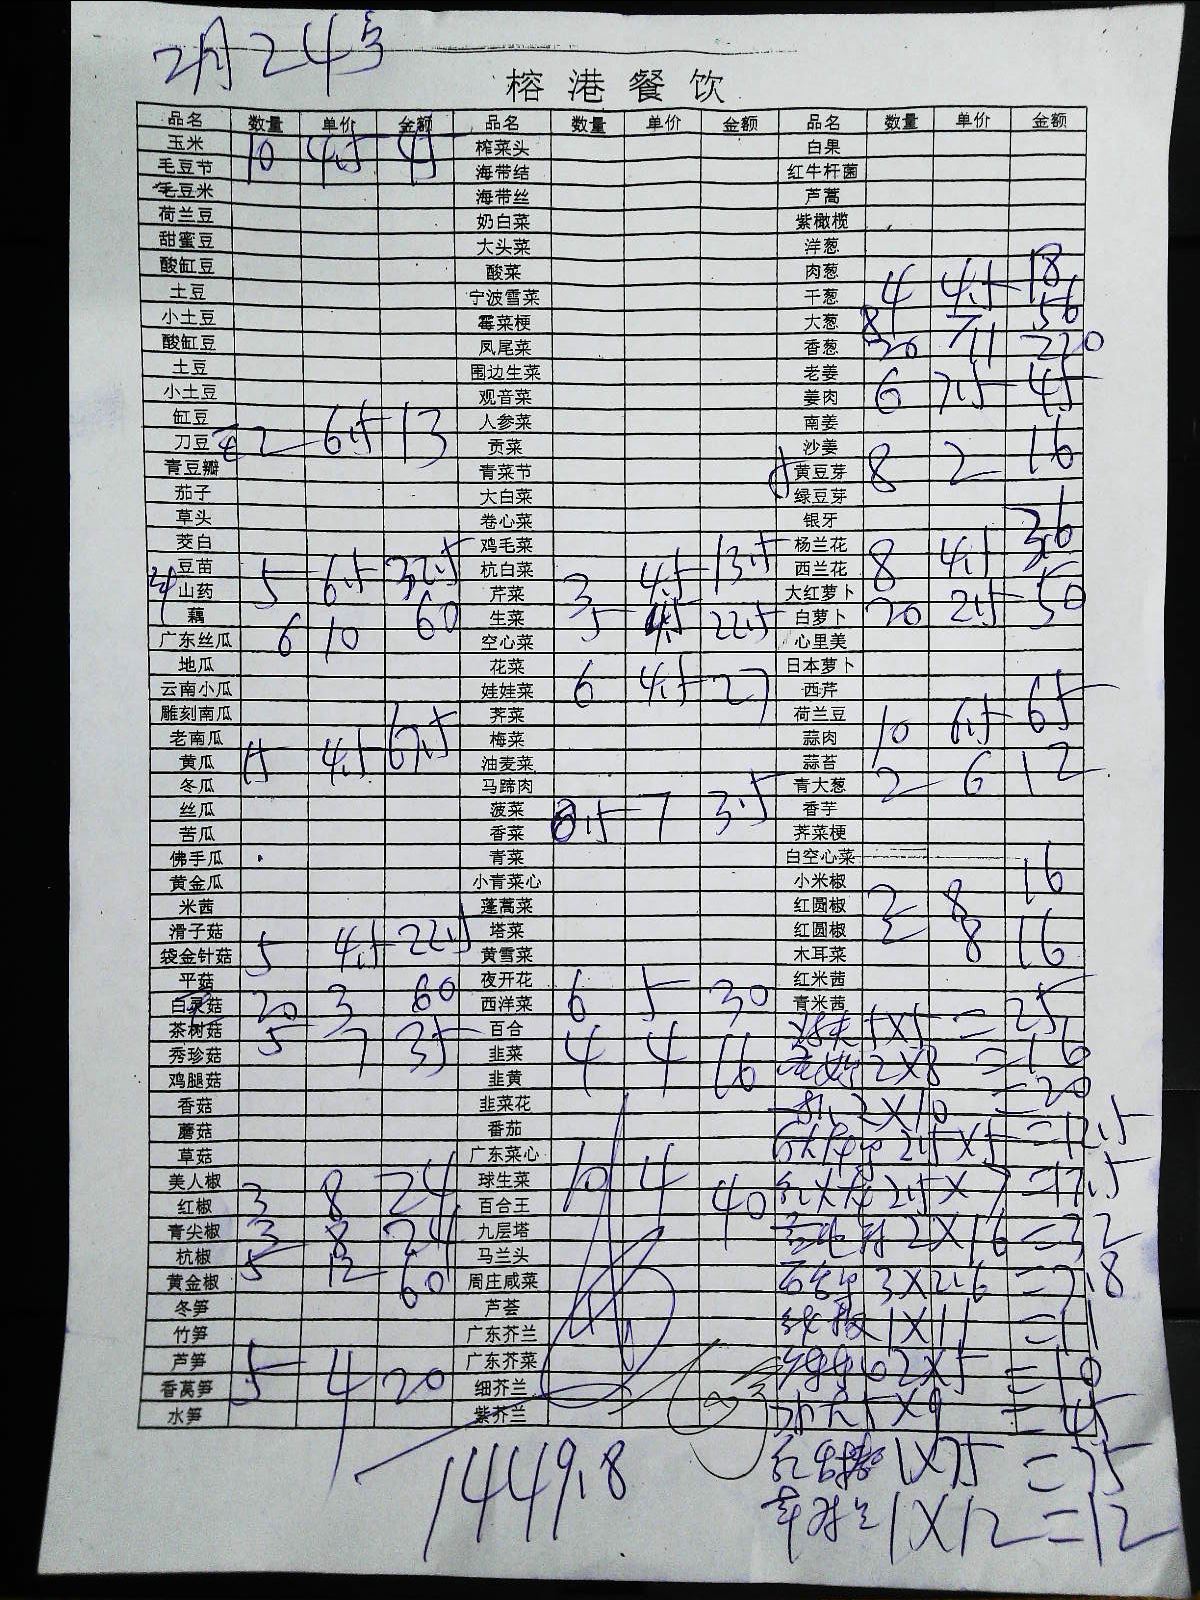 2月24号
榕港餐饮
品名 数量 单价 金额 品名 数量 单价 金额 品名 数量 单价 金额
玉米 10 4.5 45 榨菜头 白果
毛豆节 海带结 红牛杆菌
毛豆米 海带丝 芦蒿
荷兰豆 奶白菜 紫橄榄
甜蜜豆 大头菜 洋葱
酸缸豆 酸菜 肉葱
土豆 宁波雪菜 干葱 4 4.5 18
小土豆 霉菜梗 大葱 8 7 56
酸缸豆 凤尾菜 香葱 20 11 220
土豆 围边生菜 老姜
小土豆 观音菜 姜肉 6 7.5 45
缸豆 人参菜 南姜
刀豆 2 6.5 13 贡菜 沙姜
青豆瓣 青菜节 黄豆芽 8 2 16
茄子 大白菜 绿豆芽
草头 卷心菜 银牙
茭白 鸡毛菜 杨兰花
豆苗 杭白菜 西兰花 8 4.5 36
山药 5 6.5 32.5 芹菜 3 4.5 13.5 大红萝卜
藕 生菜 5 4.5 22.5 白萝卜 20 2.5 50
广东丝瓜 6 10 60 空心菜 心里美
地瓜 花菜 日本萝卜
云南小瓜 娃娃菜 6 4.5 27 西芹
雕刻南瓜 荠菜 荷兰豆
老南瓜 梅菜 蒜肉 10 6.5 65
黄瓜 15 4.5 67.5 油麦菜 蒜苔
冬瓜 马蹄肉 青大葱 2 6 12
丝瓜 菠菜 香芋
苦瓜 香菜 7 荠菜梗
佛手瓜 青菜 白空心菜
黄金瓜 小青菜心 小米椒
米茜 蓬蒿菜 红圆椒 2 8 16
滑子菇 塔菜 红圆椒 2 8 16
袋金针菇 5 4.5 22.5 黄雪菜 木耳菜
平菇 夜开花 红米茜
白灵菇 20 3 60 西洋菜 6 5 30 青米茜
茶树菇 5 7 35 百合 5X5=25
秀珍菇 韭菜 4 4 16 2X8=16
鸡腿菇 韭黄 =20
香菇 韭菜花 2X10
蘑菇 番茄 2.5X5=12.5
草菇 广东菜心 10 4 40
美人椒 球生菜 2.5X7=17.5
红椒 3 8 24 百合王
青尖椒 3 8 24 九层塔 2X16=32
杭椒 5 12 60 马兰头
黄金椒 周庄咸菜 3X2.6=7.8
冬笋 芦荟 1X11=11
竹笋 广东芥兰
芦笋 广东芥菜 2X5=10
香莴笋 5 4 20 细芥兰
水笋 紫芥兰 5X9=45
1X75=75
1449.8
1X12=12